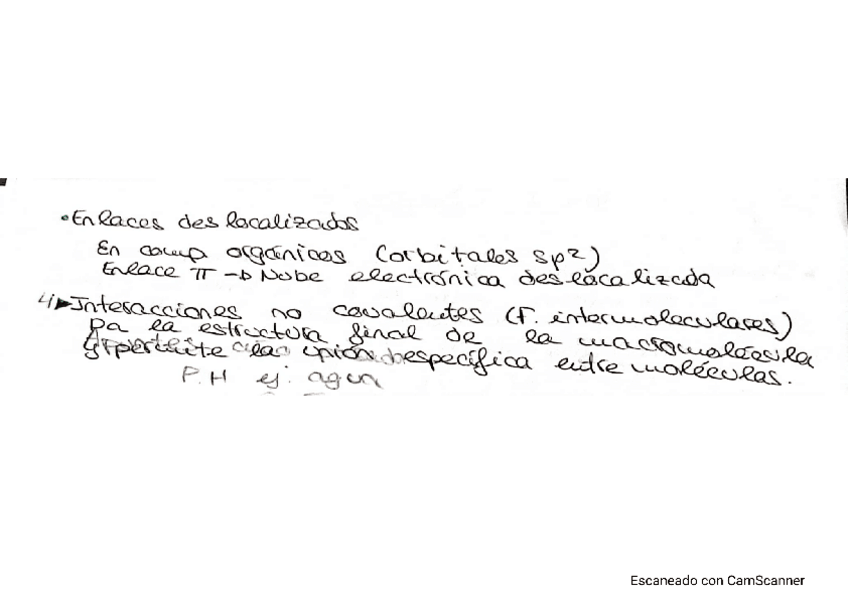 •Enlaces deslocalizados
En comp orgánicos (orbitales sp2)
Enlace π → Nube electrónica deslocalizada
4) Interacciones no covalentes (F. intermoleculares)
Da la estructura final de la macromolécula
y permite la unión específica entre moléculas.
P.H ej. agua
Escaneado con CamScanner